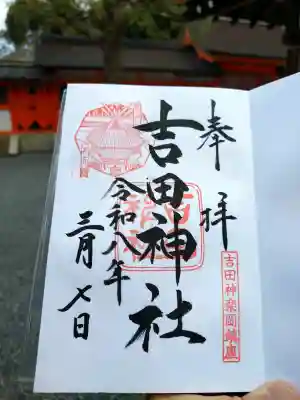 奉拝
吉田神社
令和八年
三月七日
吉田神楽岡鎮座